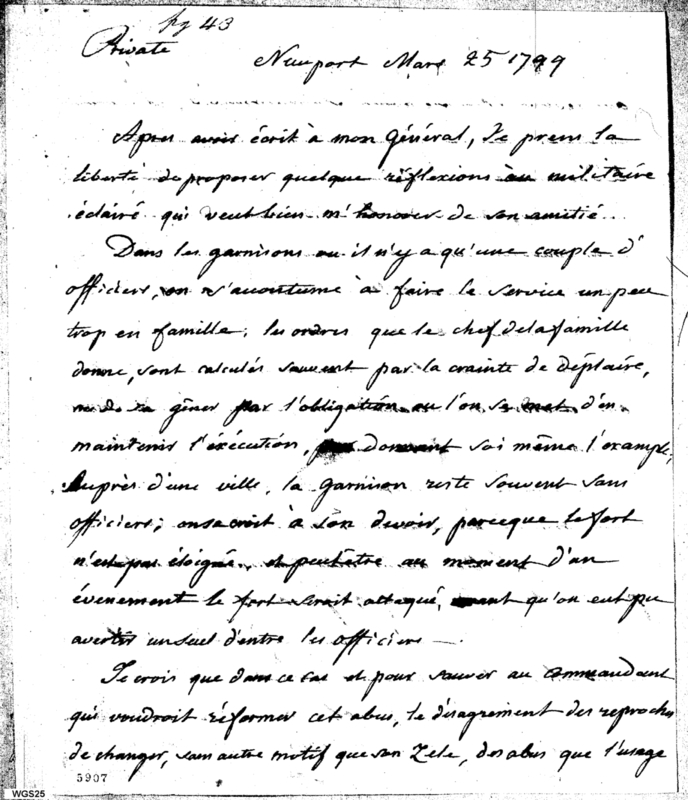 pg 43
Private
Newport Mars 25 1799
Apres avoir écrit à mon Général, Je prens la
liberté de proposer quelque réflexions au militaire
éclairé qui veut bien m'honorer de son amitié..
Dans les garnisons ou il n'y a qu'une couple d'
officiers, on s'acoutume à faire le service un peu
trop en famille; les ordres que le chef de la famille
donne, sont calculés souvent par la crainte de déplaire,
gêner par l'obligation ou l'on se met d'en
maintenir l'éxécution, donnant soi même l'example;
Auprès d'une ville, la garnison reste souvent sans
officiers; on se croit à son devoir, parceque le fort
n'est pas éloigné, et peutêtre au moment d'un
évenement le fort seroit attaqué, avant qu'on eut pu
avertir un seul d'entre les officiers —.
Je crois que dans ce cas et pour sauver au commandant
qui voudroit réformer cet abus, le désagrement des reproches
de changer, sans autre motif que son Zele, des abus que l'usage
5907
WGS25